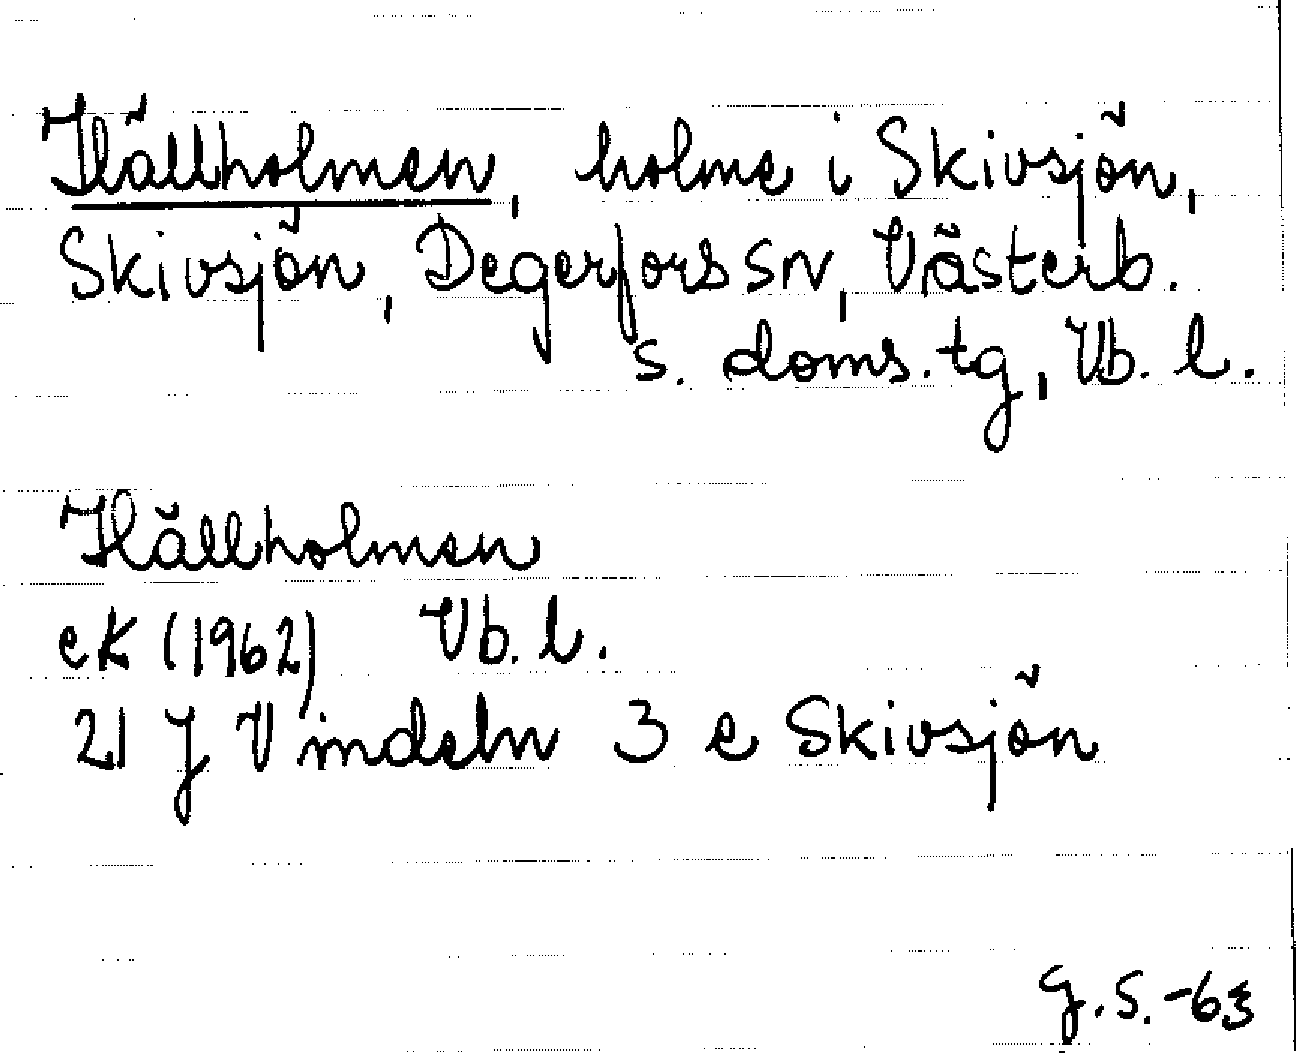 Hällholmen, holme i Skivsjön,
Skivsjön, Degerfors sn, Västerb.
s. doms. tg, Vb. l.
Hällholmen
ek (1962) Vb. l.
21 J Vindeln 3 e Skivsjön
G.S.-63